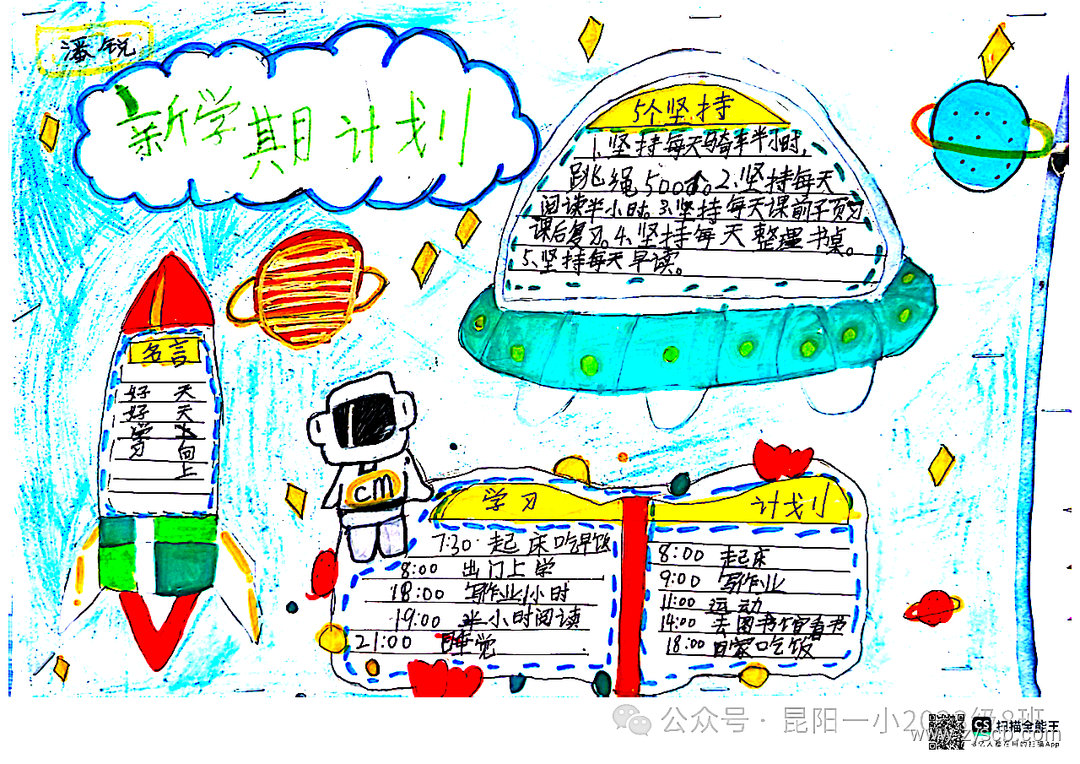 潘锐
新学期计划
5个坚持
1.坚持每天骑车半小时,
跳绳500个。2.坚持每天
阅读半小时。3.坚持每天课前预习
课后复习。4.坚持每天整理书桌。
5.坚持每天早读。
名言
好好学习
天天向上
cm
学习
7:30 起床吃早饭
8:00 出门上学
18:00 写作业1小时
19:00 半小时阅读
21:00 睡觉
计划
8:00 起床
9:00 写作业
11:00 运动
14:00 去图书馆看书
18:00 回家吃饭
公众号 · 昆阳一小2022级8班
CS 扫描全能王